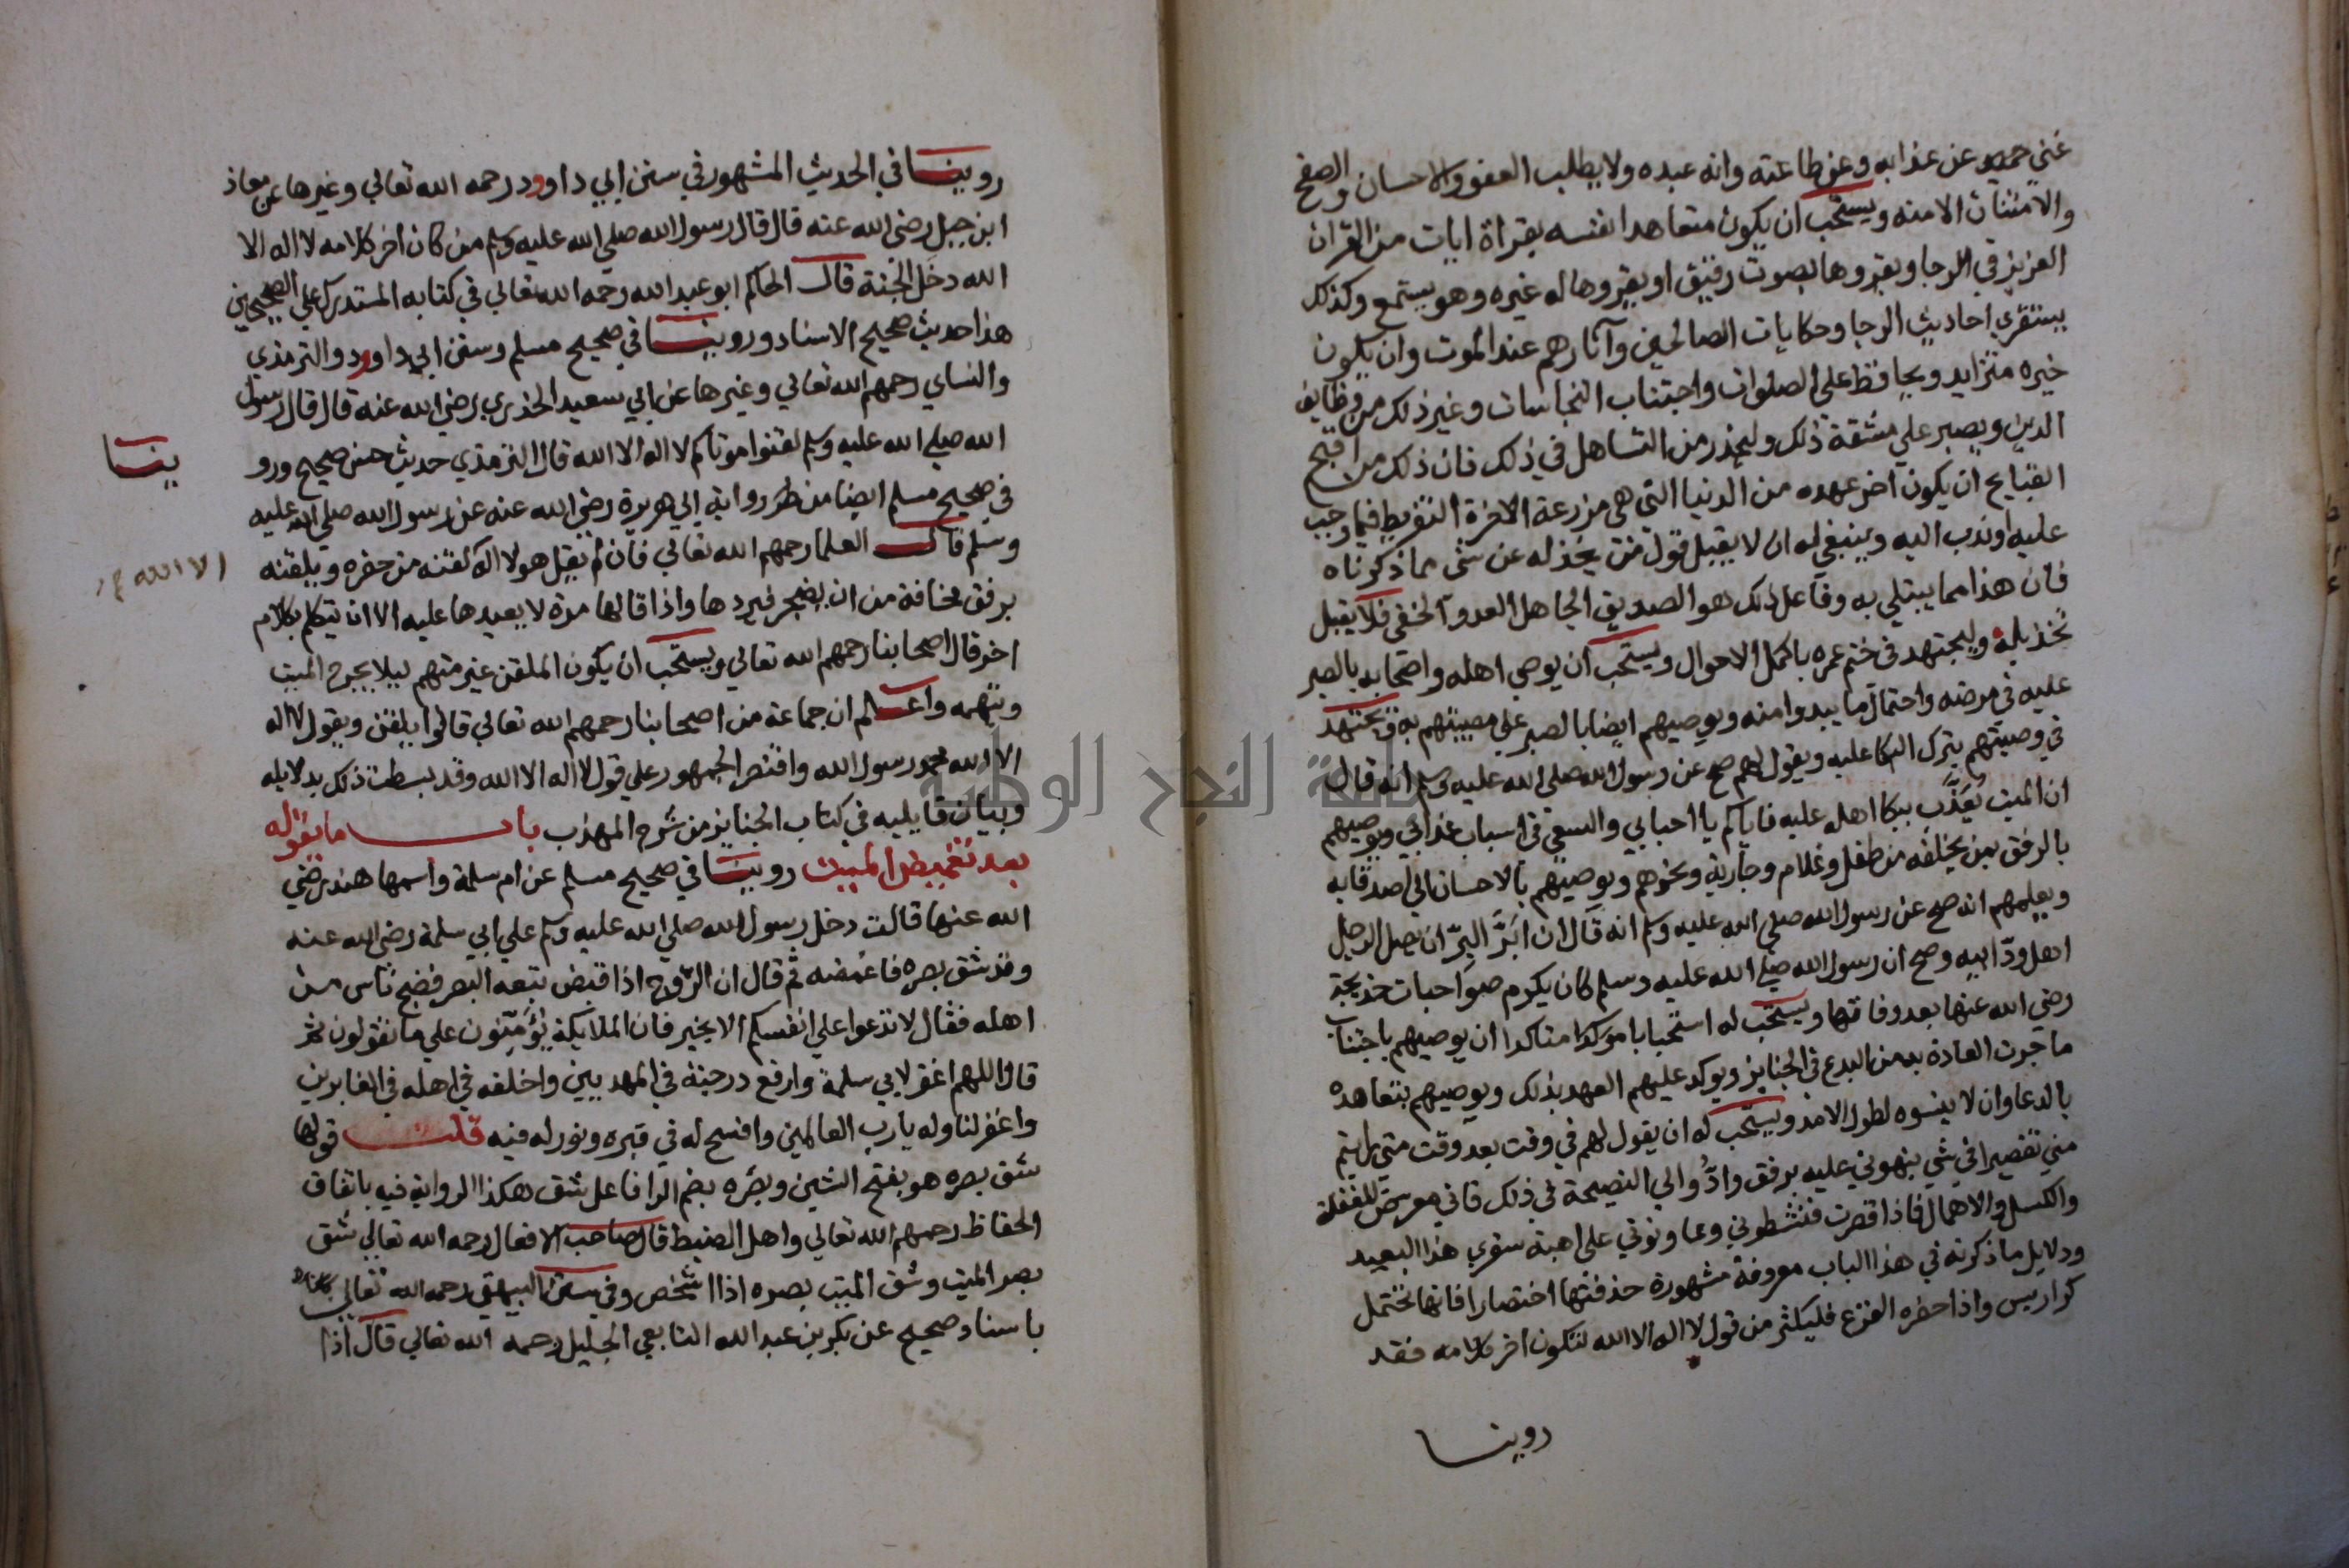 غني حميد عن عذابه وعن طاعته وانه عبده ولا يطلب العفو والاحسان والصفح
والامتنان الا منه ويستحب ان يكون متعاهدا نفسه بقراة ايات من القران
العزيز في الرجا ويقروها بصوت رقيق او يقروها له غيره وهو يستمع وكذلك
يستقري احاديث الرجا وحكايات الصالحين وآثارهم عند الموت وان يكون
خيره متزايد ويحافظ على الصلوات واجتناب النجاسات وغير ذلك من وظايف
الدين ويصبر علي مشقة ذلك وليحذر من التساهل في ذلك فان ذلك من اقبح
القبايح ان يكون اخر عهده من الدنيا التي هي مزرعة الاخرة التفريط فيما وجب
عليه او ندب اليه وينبغي له ان لا يقبل قول من يخذله عن شي مما ذكرناه
فان هذا مما يبتلي به وفاعل ذلك هو الصديق الجاهل العدو الخفي فلا يقبل
تخذيله وليجتهد في ختم عمره باكمل الاحوال ويستحب ان يوصي اهله واصحابه بالصبر
عليه في مرضه واحتمال ما يبدوا منه ويوصيهم ايضا بالصبر علي مصيبتهم به ويجتهد
في وصيتهم بترك البكا عليه ويقول لهم صح عن رسول الله صلى الله عليه وسلم انه قال
ان الميت يُعَذَّب ببكا اهله عليه فاياكم يا احبابي والسعي في اسباب عذابي ويوصيهم
بالرفق بمن يخلفه من طفل وغلام وجارية ونحوهم ويوصيهم بالاحسان الي اصدقايه
ويعلمهم انه صح عن رسول الله صلي الله عليه وسلم انه قال ان ابرَّ البِرّ ان يصل الرجل
اهل ودّ ابيه وصح ان رسول الله صلي الله عليه وسلم كان يكرم صواحبات خديجة
رضي الله عنها بعد وفاتها ويستحب له استحبابا موكدا متاكدا ان يوصيهم باجتناب
ما جرت العادة به من البدع في الجنايز ويوكد عليهم العهد بذلك ويوصيهم بتعاهده
بالدعا وان لا ينسوه لطول الامد ويستحب له ان يقول لهم في وقت بعد وقت متي رايتم
مني تقصيرا في شي ينهوني عليه برفق وادُّوا الي النصيحة في ذلك فاني معرض للغفلة
والكسل والاهمال فاذا قصرت فنشطوني وعاونوني على اهبة سفري هذا البعيد
ودلايل ما ذكرته في هذا الباب معروفة مشهورة حذفتها اختصارا فانها تحتمل
كراريس واذا حضره الفزع فليكثر من قول لا اله الا الله لتكون اخر كلامه فقد
روينا
روينا في الحديث المشهور في سنن ابي داوود رحمه الله تعالي وغيرها عن معاذ
ابن جبل رضي الله عنه قال قال رسول الله صلي الله عليه وسلم من كان اخر كلامه لا اله الا
الله دخل الجنة قال الحاكم ابو عبد الله رحمه الله تعالي في كتابه المستدرك علي الصحيحين
هذا حديث صحيح الاسناد وروينا في صحيح مسلم وسنن ابي داوود والترمذي
والنساي رحمهم الله تعالي وغيرها عن ابي سعيد الخذري رضي الله عنه قال قال رسول
الله صلي الله عليه وسلم لقنوا موتاكم لا اله الا الله قال الترمذي حديث حسن صحيح ورو
ينا
في صحيح مسلم ايضا من رواية ابي هريرة رضي الله عنه عن رسول الله صلي الله عليه
وسلم قال العلما رحمهم الله تعالي فان لم يقل هو لا اله لقنه من حضره ويلقنه
الا الله
برفق مخافة من ان يضجر فيردها واذا قالها مرة لا يعيدها عليه الا ان يتكلم بكلام
اخر قال اصحابنا رحمهم الله تعالي ويستحب ان يكون الملقن غير متهم ليلا يحرج الميت
ويتهمه واعلم ان جماعة من اصحابنا رحمهم الله تعالي قالوا يلقن ويقول لا اله
الا الله محمد رسول الله واقتصر الجمهور علي قول لا اله الا الله وقد بسطت ذلك بدلايله
وبيان قايليه في كتاب الجنايز من شرح المهذب باب ما يقوله
بعد تغميض الميت روينا في صحيح مسلم عن ام سلمة واسمها هند رضي
الله عنها قالت دخل رسول الله صلي الله عليه وسلم علي ابي سلمة رضي الله عنه
وقد شق بصره فاغمضه ثم قال ان الروح اذا قبض تبعه البصر فضج ناس من
اهله فقال لا تدعوا علي انفسكم الا بخير فان الملايكة يؤمنون علي ما تقولون ثم
قال اللهم اغفر لابي سلمة وارفع درجته في المهديين واخلفه في اهله في الغابرين
واغفر لنا وله يا رب العالمين وافسح له في قبره ونور له فيه قلت قولها
شق بصره هو بفتح الشين وبصَرُه بضم الرا فاعل شق هكذا الرواية فيه باتفاق
الحفاظ رحمهم الله تعالي واهل الضبط قال صاحب الافعال رحمه الله تعالي شق
بصر الميت وشق الميت بصره اذا شخص وفي سنن البيهقي رحمه الله تعالي
باسناد صحيح عن بكر بن عبد الله التابعي الجليل رحمه الله تعالي قال اذا